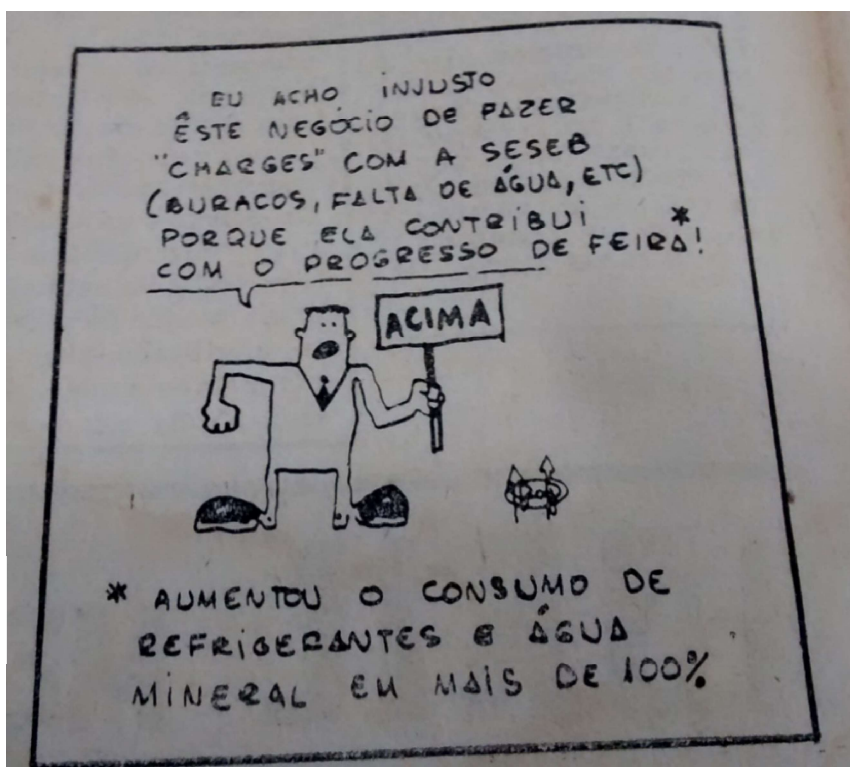 EU ACHO INJUSTO
ÊSTE NEGÓCIO DE FAZER
"CHARGES" COM A SESEB
(BURACOS, FALTA DE ÁGUA, ETC)
PORQUE ELA CONTRIBUI *
COM O PROGRESSO DE FEIRA!
ACIMA
* AUMENTOU O CONSUMO DE
REFRIGERANTES E ÁGUA
MINERAL EM MAIS DE 100%